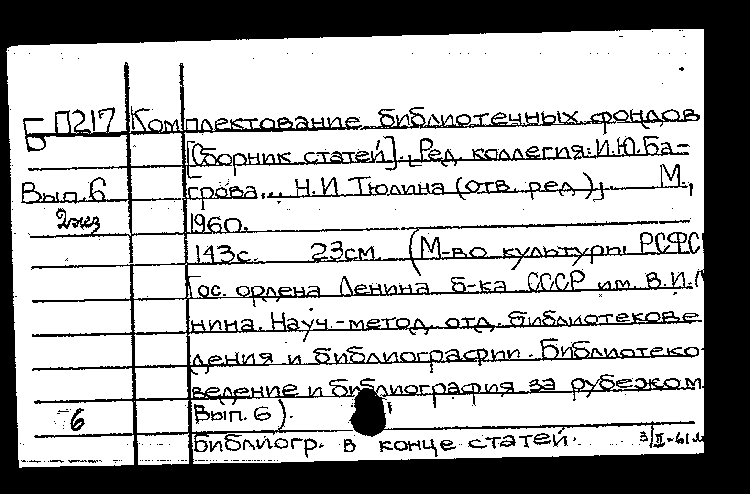 Б П217 Комплектование библиотечных фондов
[Сборник статей]., Ред. коллегия: И.Ю. Ба-
Вып. 6 грова... Н.И. Тюлина (отв. ред.),. М.,
2 экз 1960.
143 с. 23 см. (М-во культуры РСФС
Гос. ордена Ленина б-ка СССР им. В.И.
нина. Науч.-метод. отд. библиотекове
дения и библиографии. Библиотеко
ведение и библиография за рубежом
6 Вып. 6).
Библиогр. в конце статей. 3/II-61